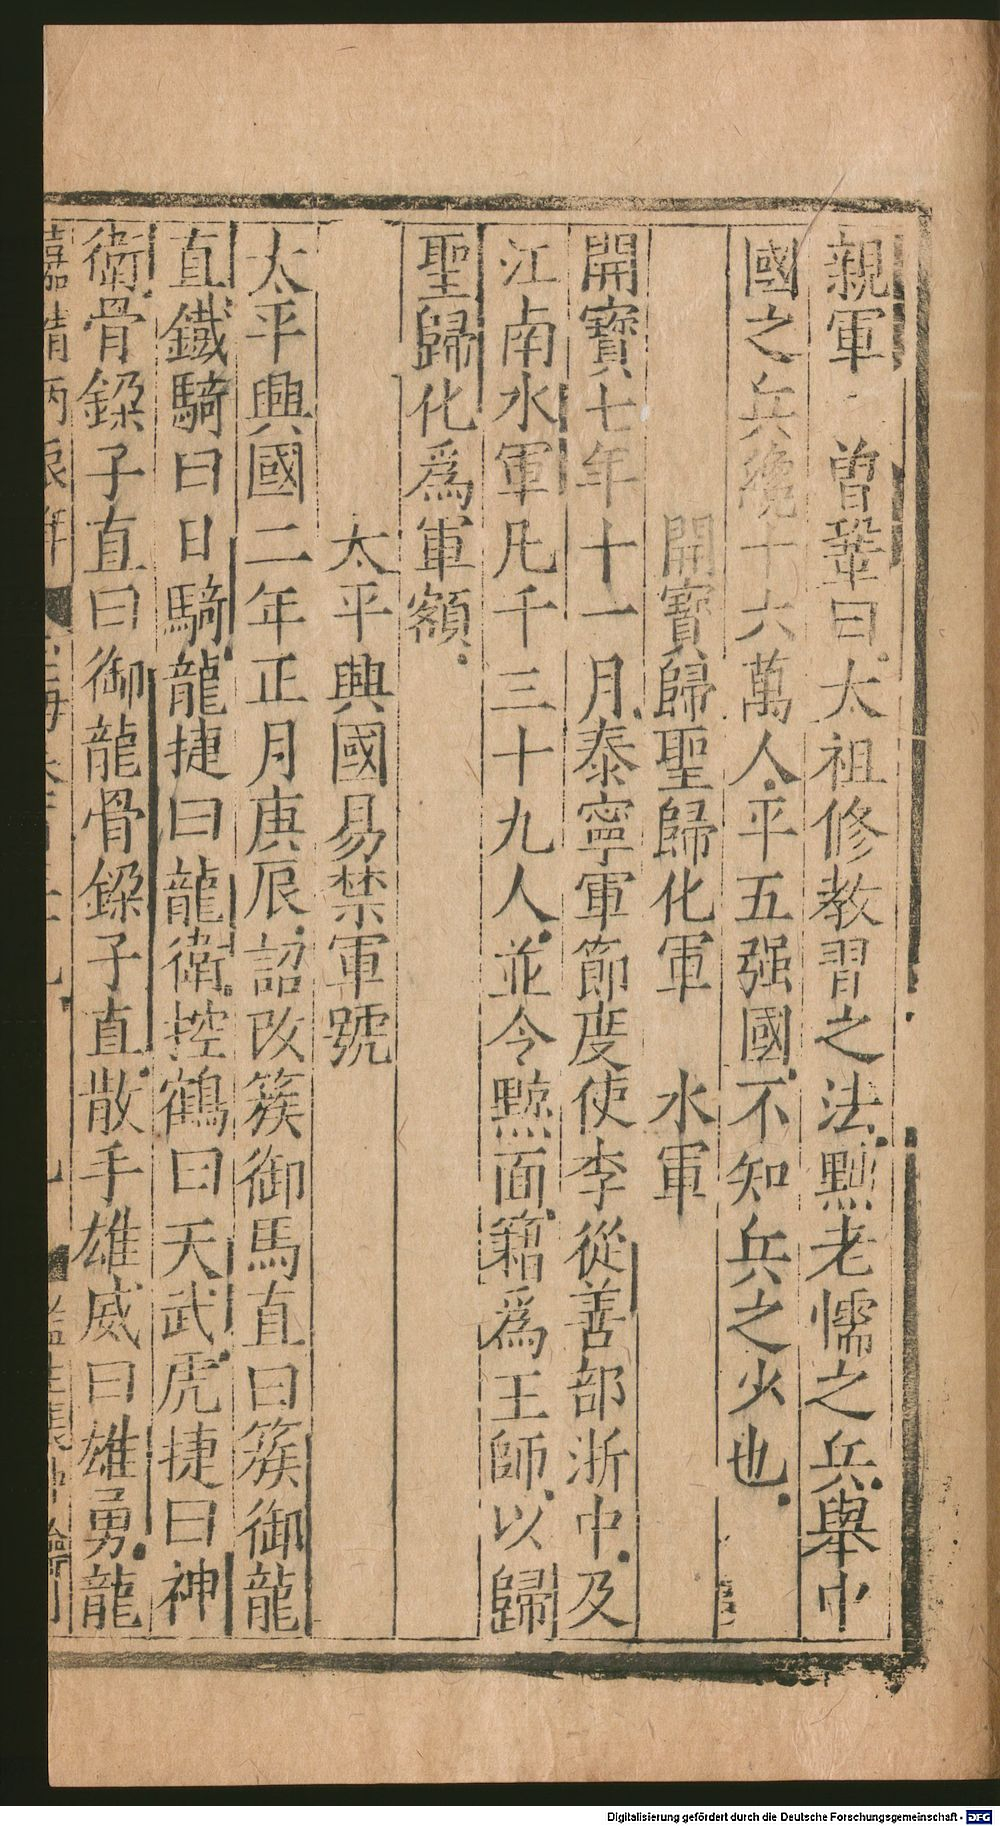 親軍 曽鞏曰太祖修教習之法黜老懦之兵舉中
國之兵纔十六萬人平五强國不知兵之少也
開寶歸聖歸化軍 水軍
開寶七年十一月泰寧軍節度使李從善部浙中及
江南水軍凡千三十九人並令黥面籍爲王師以歸
聖歸化爲軍額
太平興國易禁軍號
太平興國二年正月庚辰詔改簇御馬直曰簇御龍
直鐵騎曰日騎龍捷曰龍衛控鶴曰天武虎捷曰神
衛骨鍂子直曰御龍骨鍂子直散手雄威曰雄勇龍
Digitalisierung gefördert durch die Deutsche Forschungsgemeinschaft - DFG